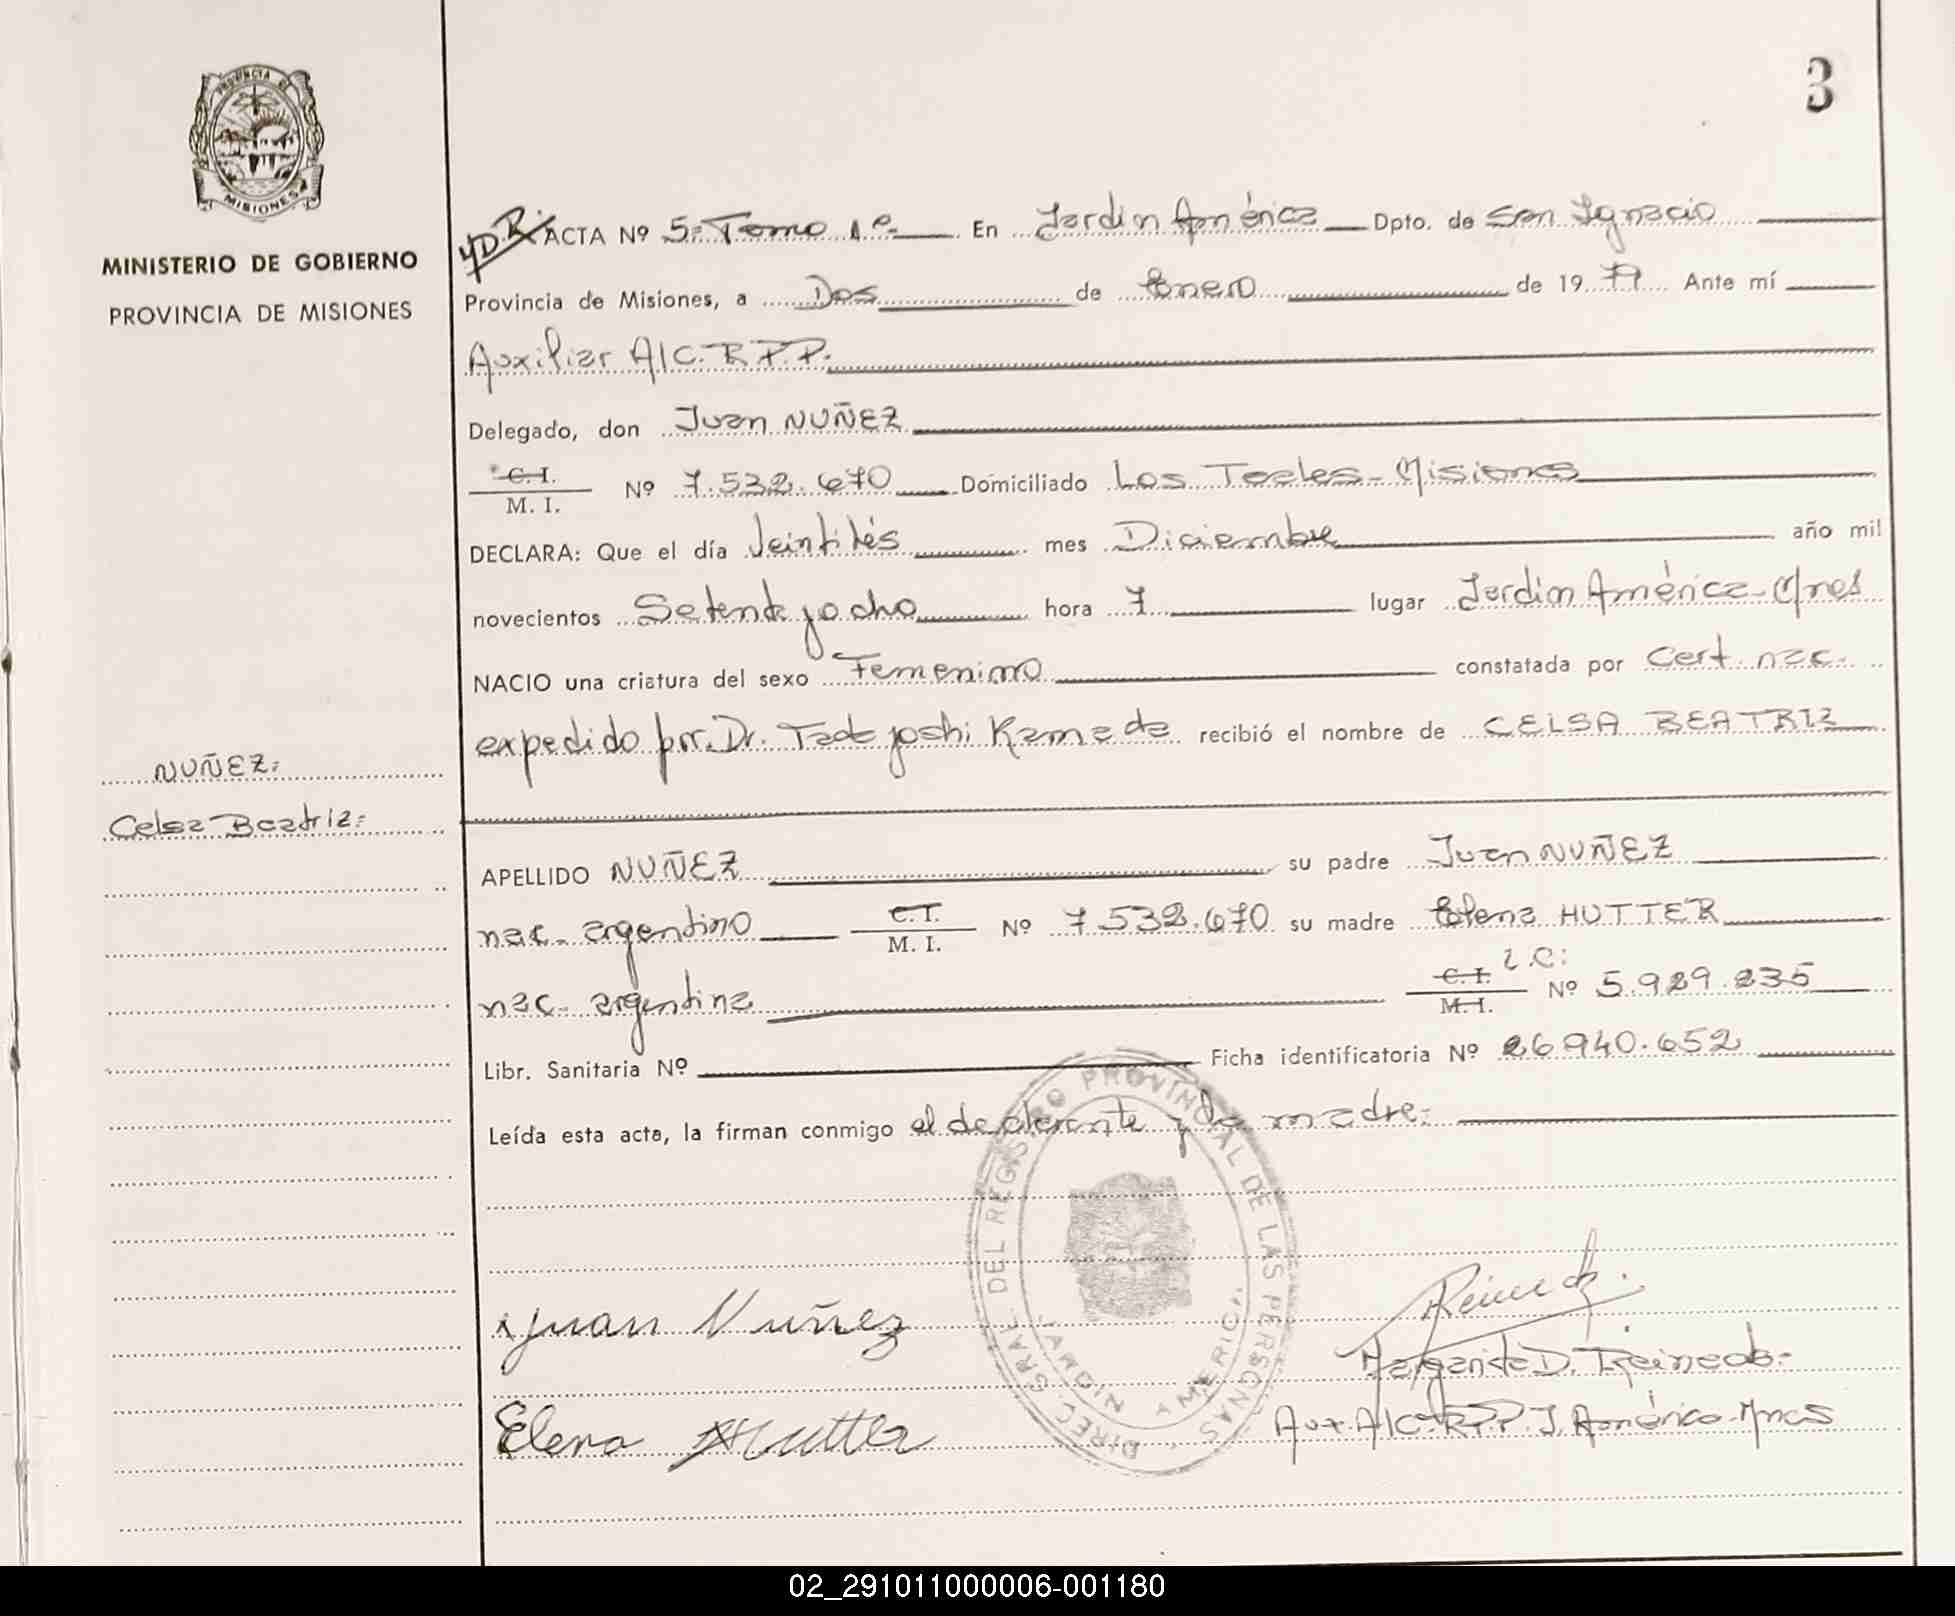 3
PROVINCIA DE
MISIONES
MINISTERIO DE GOBIERNO
PROVINCIA DE MISIONES
ACTA Nº 5:- Tomo 1º- En Jardin América Dpto. de San Ignacio
Provincia de Misiones, a Dos de Enero de 1979 Ante mí
Auxiliar A/C. R.P.P.
Delegado, don Juan NUÑEZ
C.I.
M. I. Nº 7.532.670 Domiciliado Los Teales-Misiones
DECLARA: Que el día Veintitrés mes Diciembre año mil
novecientos Setenta y ocho hora 7 lugar Jardin América-Mnes
NACIO una criatura del sexo Femenino constatada por Cert. nac.
expedido por. Dr. Tadayoshi Kameda recibió el nombre de CELSA BEATRIZ
NUÑEZ:
Celsa Beatriz:
APELLIDO NUÑEZ su padre Juan NUÑEZ
nac. argentino C.I. M. I. Nº 7.532.670 su madre Elena HUTTER
nac. argentina C.I. L.C: M.I. Nº 5.929.235
Libr. Sanitaria Nº Ficha identificatoria Nº 26.940.652
Leída esta acta, la firman conmigo el declarante y la madre:
DIREC. GRAL. DEL REGISTRO PROVINCIAL DE LAS PERSONAS
JARDIN AMERICA
Juan Nuñez
Margarita D. Reineck.
Elena Hutter
Aux. A/C. R.P.P. J. América-Mnes
02_291011000006-001180